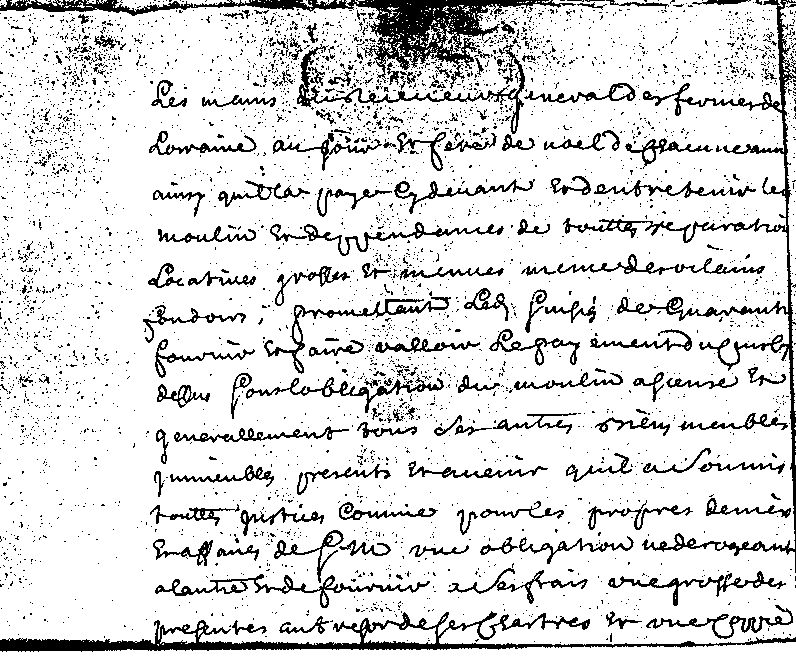 Les mains du Receveur general des fermes de
Lorraine au jour et feste de noel de chacune ann
ainsy qu'il a payer cy devant et d'entretenir les
moulin et deppendances de touttes reparatio
Locatives grosses et menues meme des vilains
fondoirs, promettant Led. de Guarantir
fournir et faire valloir Le payement du cy
dessus sous lobligation du moulin ascensé et
generallement tous ses autres biens meubles
immeubles presents et avenir qu'il a soumis
touttes justices comme pour les propres deniers
et affaires de S M une obligation ne derogeant
a lautre et de fournir a ses frais une grosse des
presentes au tresor de ses Chartres et une coppie